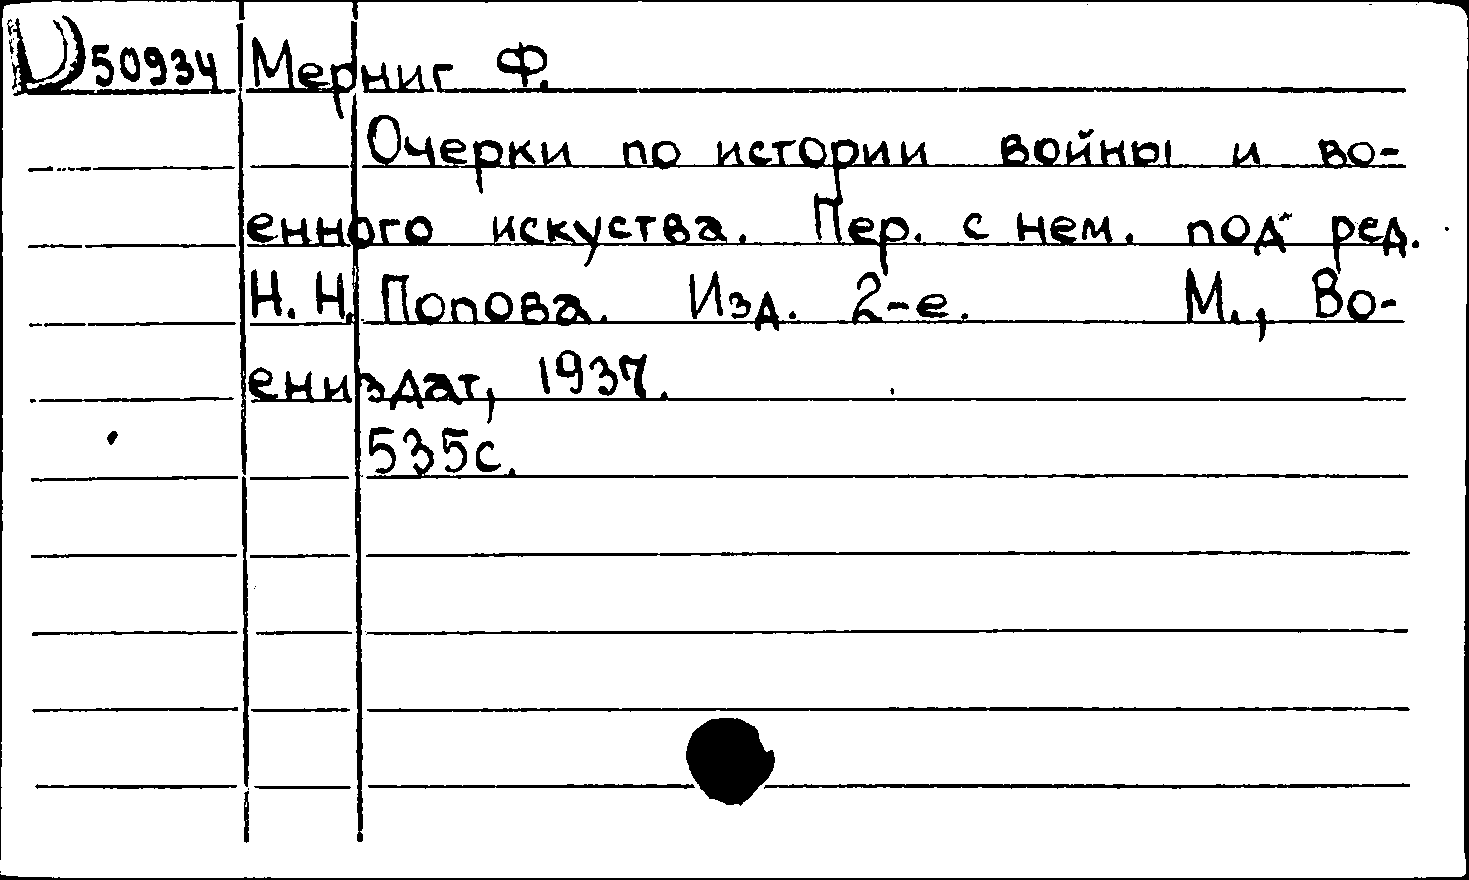 D 50934 Мерниг Ф.
Очерки по истории войны и во-
енного искуства. Пер. с нем. под ред.
Н. Н. Попова. Изд. 2-е. М., Во-
ениздат, 1937.
535с.